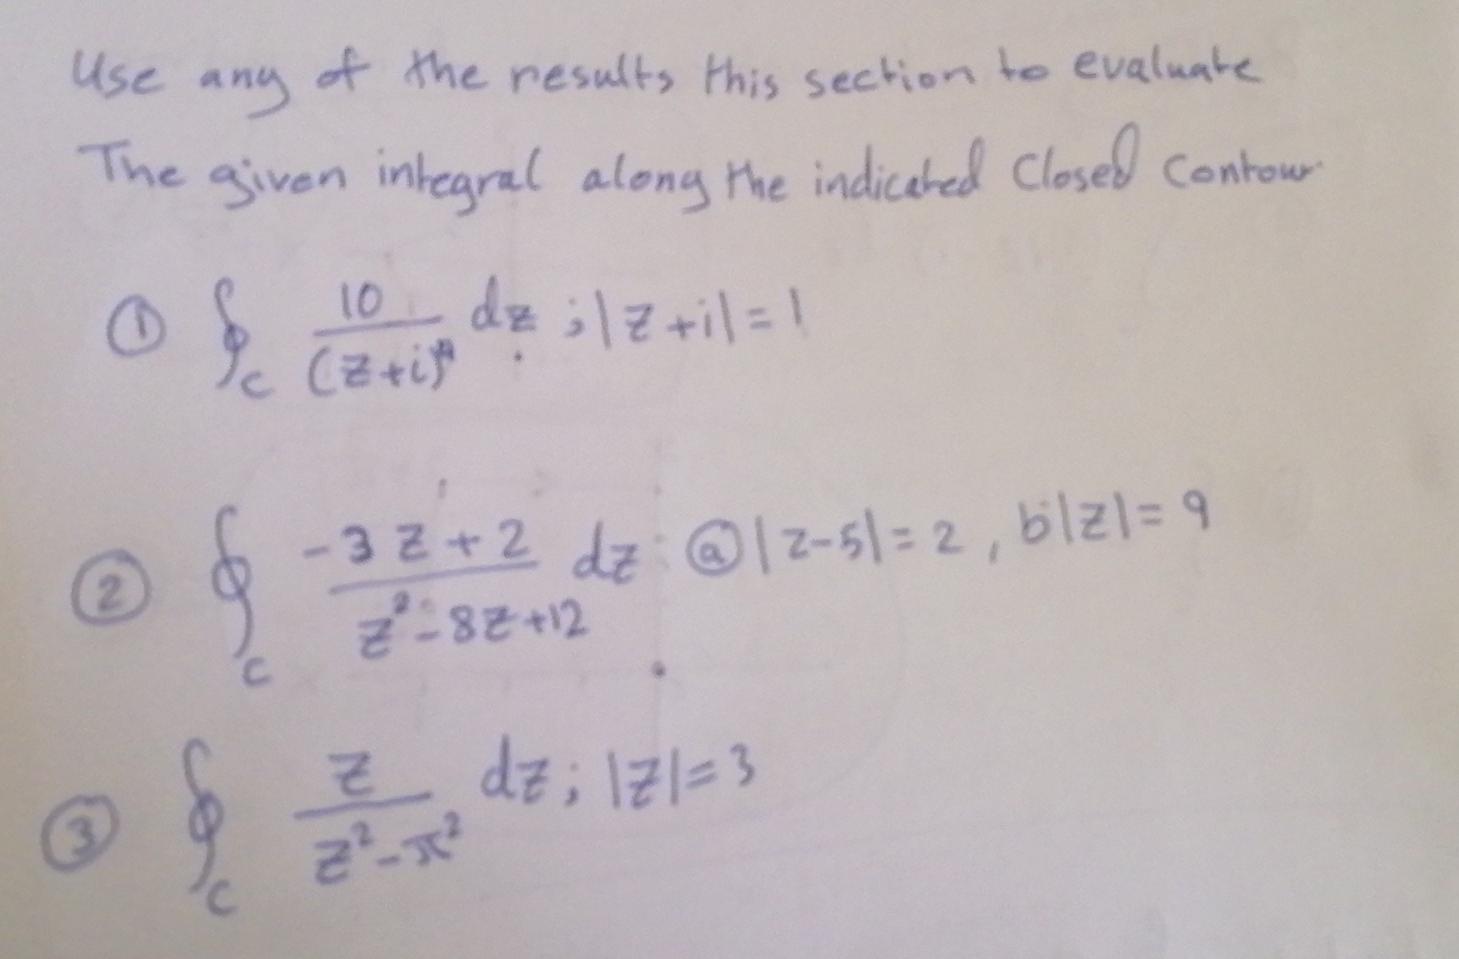 Use any of the results this section to evaluate
The given integral along the indicated Closed Contour
① ∮_C 10/(z+i)⁴ dz ; |z+i| = 1
② ∮_C (-3z+2)/(z²-8z+12) dz ⓐ |z-5| = 2, b |z| = 9
③ ∮_C z/(z²-π²) dz ; |z| = 3